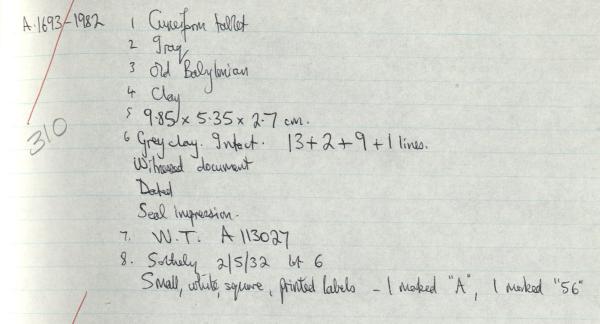 A.1693-1982 1 Cuneiform tablet
2 Iraq
3 Old Babylonian
4 Clay
5 9.85 x 5.35 x 2.7 cm.
310
6 Grey clay. Intact. 13+2+9+1 lines.
Witnessed document
Dated
Seal Impression.
7. W.T. A 113027
8. Sotheby 2/5/32 lot 6
Small, white, square, printed labels - 1 marked "A", 1 marked "56"